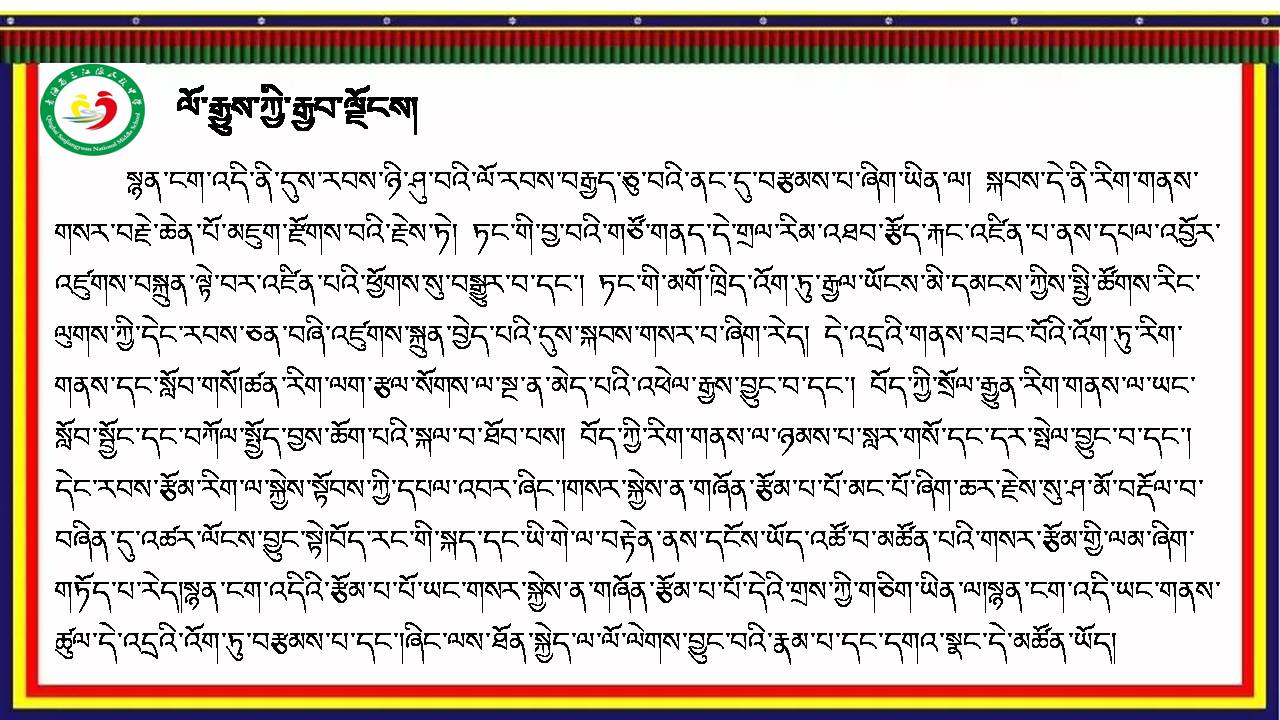 青海省三江源民族中学
Qinghai Sanjiangyuan National Middle School
ལོ་རྒྱུས་ཀྱི་རྒྱབ་ལྗོངས།
སྙན་ངག་འདི་ནི་དུས་རབས་ཉི་ཤུ་བའི་ལོ་རབས་བརྒྱད་ཅུ་བའི་ནང་དུ་བརྩམས་པ་ཞིག་ཡིན་ལ། སྐབས་དེ་ནི་རིག་གནས་
གསར་བརྗེ་ཆེན་པོ་མཇུག་རྫོགས་བའི་རྗེས་ཏེ། ཏང་གི་བྱ་བའི་གཙོ་གནད་དེ་གྲལ་རིམ་འཐབ་རྩོད་རྐང་འཛིན་པ་ནས་དཔལ་འབྱོར་
འཛུགས་བསྐྲུན་ལྟེ་བར་འཛིན་པའི་ཕྱོགས་སུ་བསྒྱུར་བ་དང་། ཏང་གི་མགོ་ཁྲིད་འོག་ཏུ་རྒྱལ་ཡོངས་མི་དམངས་ཀྱིས་སྤྱི་ཚོགས་རིང་
ལུགས་ཀྱི་དེང་རབས་ཅན་བཞི་འཛུགས་སྐྲུན་བྱེད་པའི་དུས་སྐབས་གསར་བ་ཞིག་རེད། དེ་འདྲའི་གནས་བཟང་བོའི་འོག་ཏུ་རིག་
གནས་དང་སློབ་གསོ།ཚན་རིག་ལག་རྩལ་སོགས་ལ་སྔ་ན་མེད་པའི་འཕེལ་རྒྱས་བྱུང་བ་དང་། བོད་ཀྱི་སྲོལ་རྒྱུན་རིག་གནས་ལ་ཡང་
སློབ་སྦྱོང་དང་བཀོལ་སྤྱོད་བྱས་ཆོག་པའི་སྐལ་བ་ཐོབ་པས། བོད་ཀྱི་རིག་གནས་ལ་ཉམས་པ་སླར་གསོ་དང་དར་སྤེལ་བྱུང་བ་དང་།
དེང་རབས་རྩོམ་རིག་ལ་སྐྱེས་སྟོབས་ཀྱི་དཔལ་འབར་ཞིང་།གསར་སྐྱེས་ན་གཞོན་རྩོམ་པ་པོ་མང་པོ་ཞིག་ཆར་རྗེས་སུ་ཤ་མོ་བརྡོལ་བ་
བཞིན་དུ་འཚར་ལོངས་བྱུང་སྟེ།བོད་རང་གི་སྐད་དང་ཡི་གེ་ལ་བརྟེན་ནས་དངོས་ཡོད་འཚོ་བ་མཚོན་པའི་གསར་རྩོམ་གྱི་ལམ་ཞིག་
གཏོད་པ་རེད།སྙན་ངག་འདིའི་རྩོམ་པ་པོ་ཡང་གསར་སྐྱེས་ན་གཞོན་རྩོམ་པ་པོ་དེའི་གྲས་ཀྱི་གཅིག་ཡིན་ལ།སྙན་ངག་འདི་ཡང་གནས་
ཚུལ་དེ་འདྲའི་འོག་ཏུ་བརྩམས་པ་དང་།ཞིང་ལས་ཐོན་སྐྱེད་ལ་ལོ་ལེགས་བྱུང་བའི་རྣམ་པ་དང་དགའ་སྣང་དེ་མཚོན་ཡོད།